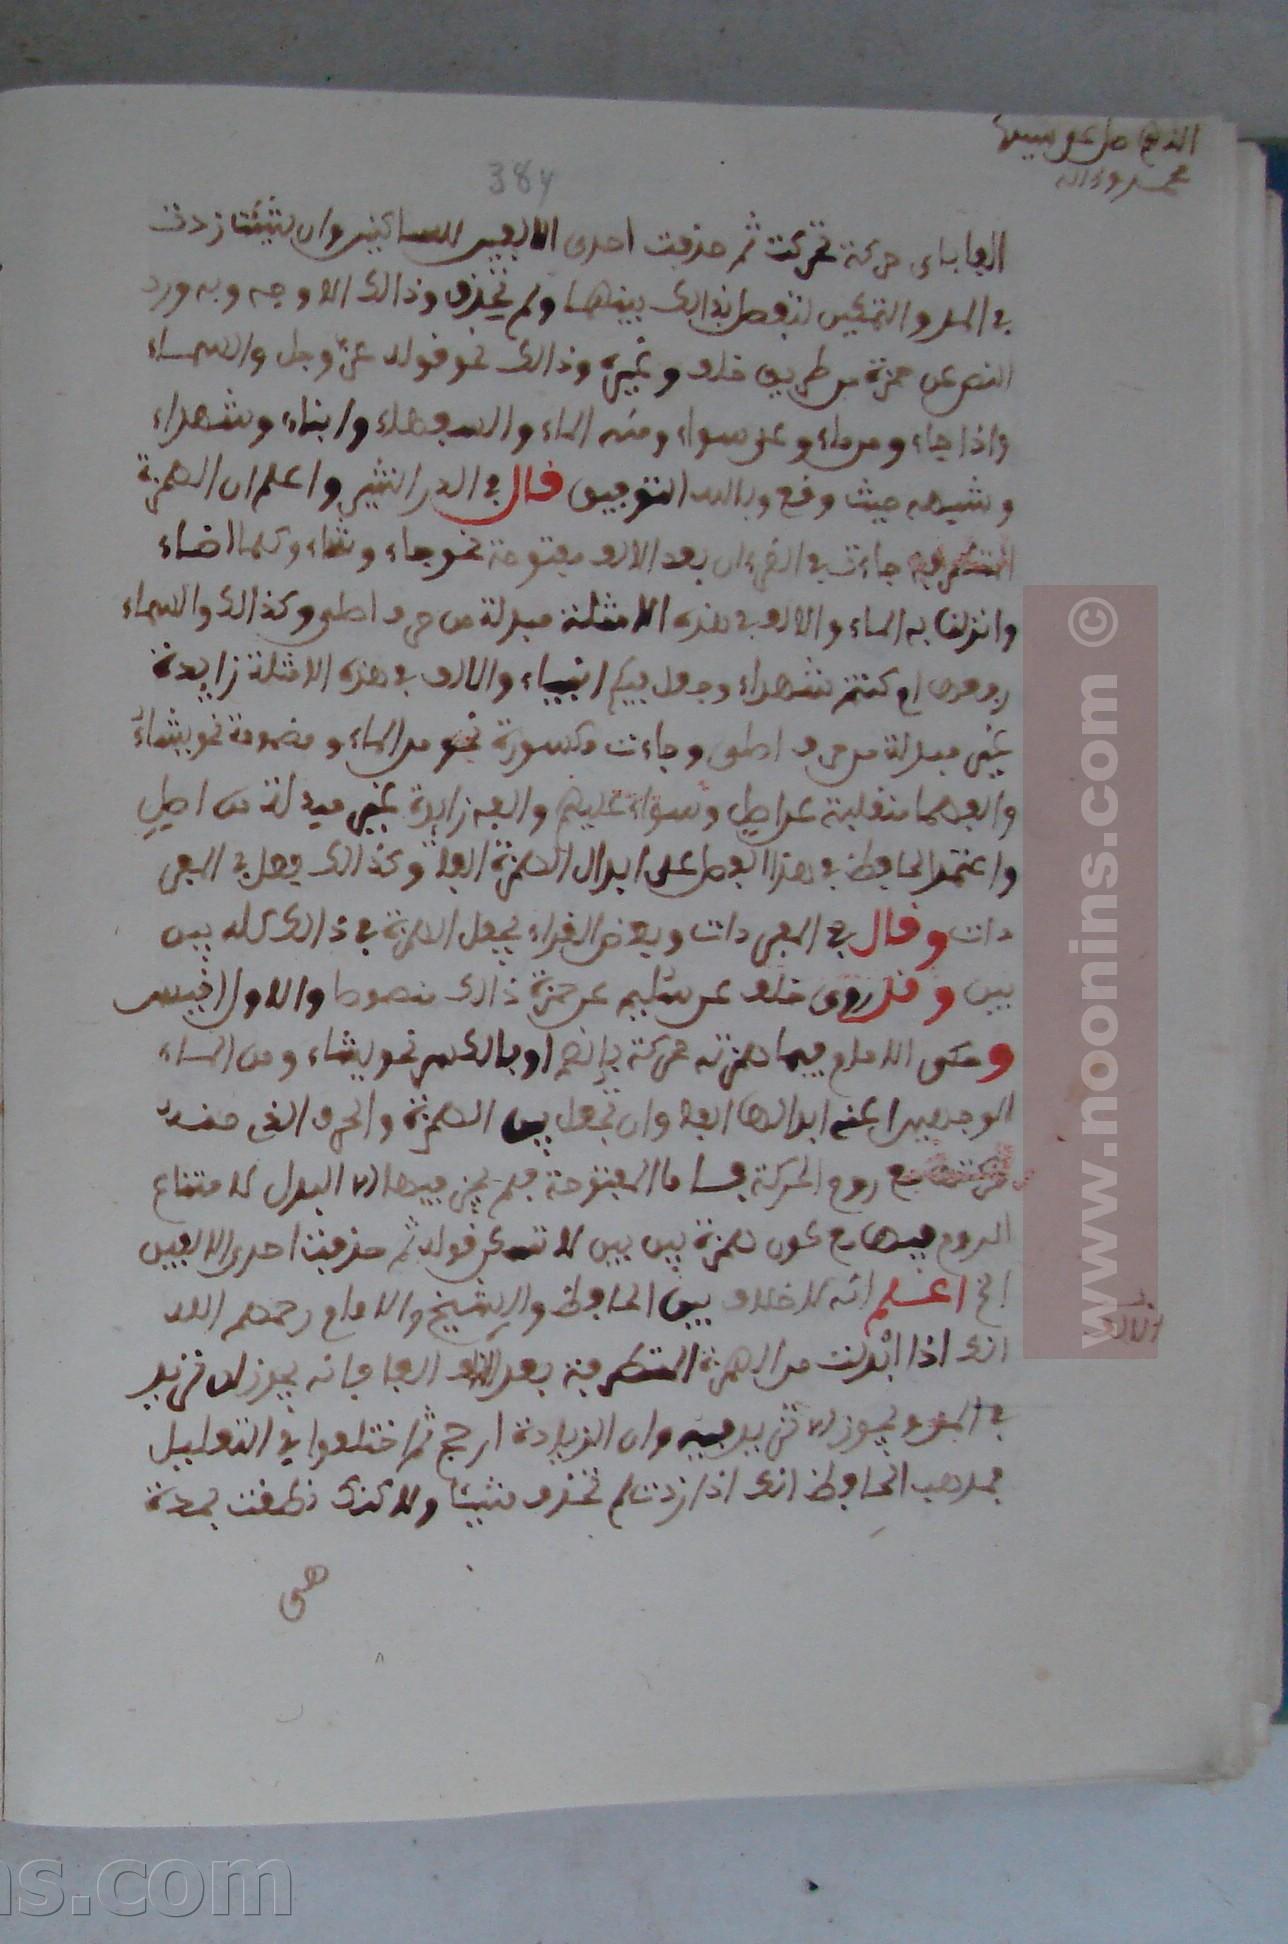 اللهم صل على سيدنا
محمد وءاله
384
الفا باي حركة تحركت ثم حذفت احدى الالفين للساكنين وان شئت زدت
في المد والتمكين لتفصل بذالك بينهما ولم تحذف وذالك الاوجه وبه ورد
النص عن حمزة من طريق خلف وغيره وذالك نحو قوله عز وجل والسماء
واذا جاء ومن ماء وعلى سواء ومنه الماء والسفهاء وابناء وشهداء
وشبهه حيث وقع وبالله التوفيق قال في الدر النثير واعلم ان الهمزة
المتطرفة جاءت في القرءان بعد الالف مفتوحة نحو جاء وشاء وكلما اضاء
وانزلنا به الماء والالف في هذه الامثلة مبدلة من حرف اصلي وكذالك والسماء
رفعها ام كنتم شهداء وجعل فيكم انبياء والالف في هذه الامثلة زايدة
غير مبدلة من حرف اصلي وجاءت مكسورة نحو من الماء ومضمومة نحو يشاء
والفهما منقلبة عن اصل وسواء عليهم والفه زايدة غير مبدلة من اصل
واعتمد الحافظ في هذا الفصل على ابدال الهمزة الفا وكذالك فعل في المفر
دات وقال في المفردات وبعض القراء يجعل الهمزة في ذالك كله بين
بين وقد روى خلف عن سليم عن حمزة ذالك منصوصا والاول اقيس
وحكى الامام فيما همزته محركة بالضم او بالكسر نحو يشاء ومن الماء
الوجهين اعني ابدالها الفا وان تجعل بين الهمزة والحرف الذي منه
حركتها مع روم الحركة فاما المفتوحة فلم يجز فيها الا البدل لامتناع
الروم فيها مع كون همزة بين بين لا تسكن قوله ثم حذفت احدى الالفين
الخ اعلم انه لا خلاف بين الحافظ والشيخ والامام رحمهم الله
انك اذا ابدلت من الهمزة المتطرفة بعد الالف الفا فانه يجوز ان تزيد
في المد ويجوز الا تزيد فيه وان الزيادة ارجح ثم اختلفوا في التعليل
فمذهب الحافظ انك اذا زدت لم تحذف شيئا ولاكنك نطقت بمدة
هي
الالف
www.noonins.com ©
ns.com